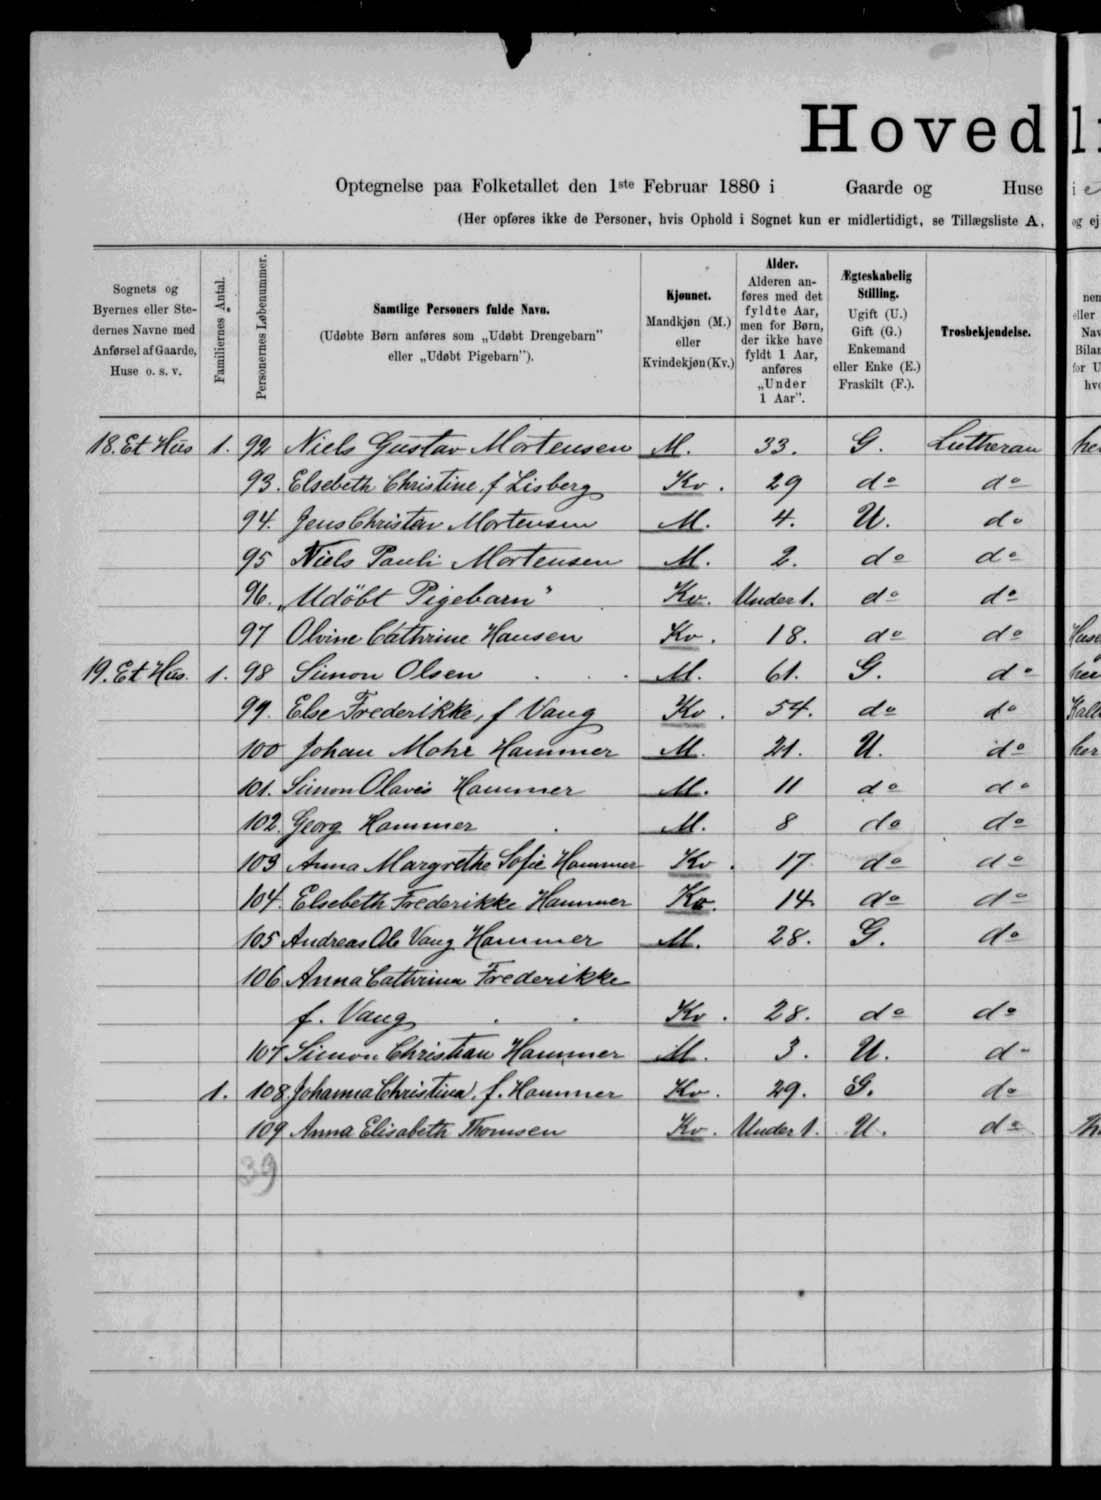 Hovedli
Optegnelse paa Folketallet den 1ste Februar 1880 i Gaarde og Huse i
(Her opføres ikke de Personer, hvis Ophold i Sognet kun er midlertidigt, se Tillægsliste A, og ej
Sognets og Byernes eller Stedernes Navne med Anførsel af Gaarde, Huse o. s. v.
Familiernes Antal.
Personernes Løbenummer.
Samtlige Personers fulde Navn.
(Udøbte Børn anføres som „Udøbt Drengebarn"
eller „Udøbt Pigebarn").
Kjønnet.
Mandkjøn (M.)
eller
Kvindekjøn (Kv.)
Alder.
Alderen anføres med det fyldte Aar, men for Børn, der ikke have fyldt 1 Aar, anføres „Under 1 Aar".
Ægteskabelig Stilling.
Ugift (U.)
Gift (G.)
Enkemand
eller Enke (E.)
Fraskilt (F.).
Trosbekjendelse.
18. Et Hus 1. 92 Niels Gustav Mortensen M. 33. G. Lutheran her
93. Elsebeth Christine, f Lisberg Kv. 29 do do
94. Jens Christian Mortensen M. 4. U. do
95 Niels Pauli Mortensen M. 2. do do
96. „Udöbt Pigebarn" Kv. Under 1. do do
97 Olvine Cathrine Hansen Kv. 18. do do
19. Et Hus. 1. 98 Simon Olsen M. 61. G. do her
99. Else Frederikke, f Vang Kv. 54. do do
100 Johan Mohr Hammer M. 21. U. do her
101. Simon Olavis Hammer M. 11 do do
102. Georg Hammer M. 8 do do
103 Anna Margrethe Sofie Hammer Kv. 17. do do
104. Elsebeth Frederikke Hammer Kv. 14 do do
105 Andreas Ole Vang Hammer M. 28. G. do
106 Anna Cathrina Frederikke
f. Vang Kv. 28. do do
107 Simon Christian Hammer M. 3. U. do
1. 108. Johanna Christina, f. Hammer Kv. 29. G. do
109 Anna Elisabeth Thomsen Kv. Under 1. U. do
39